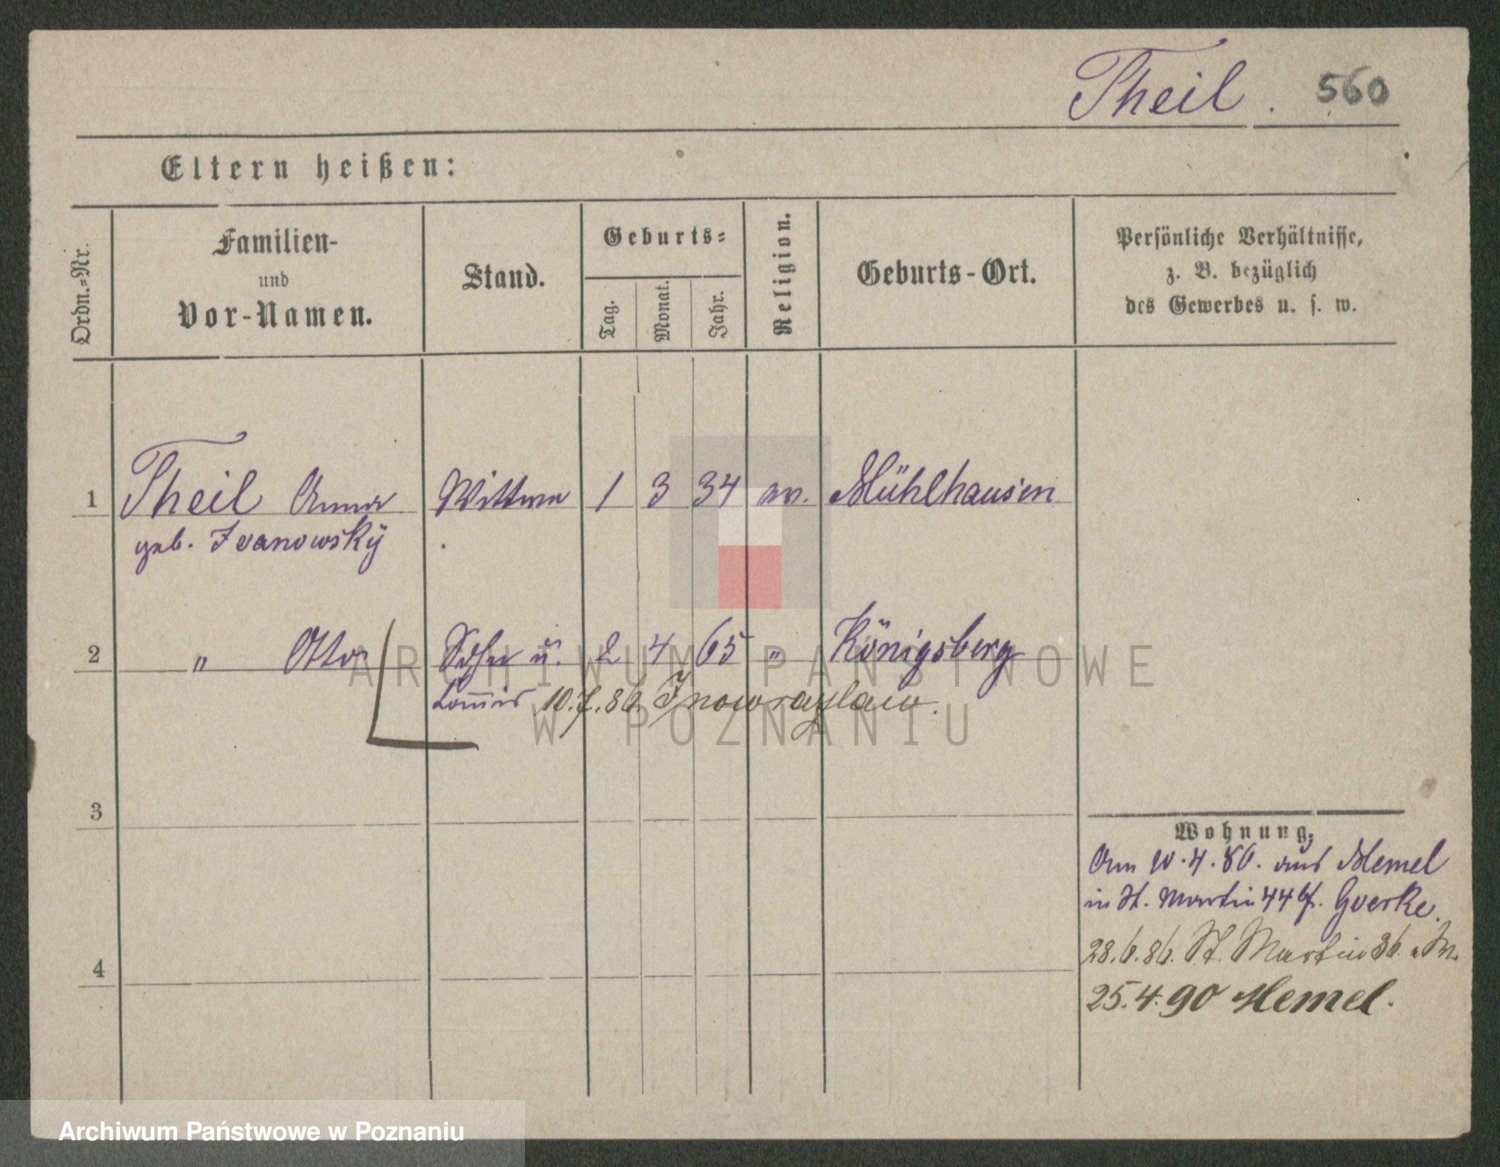 Theil. 560
Eltern heißen:
Ordn.-Nr.
Familien-
und
Vor-Namen.
Stand.
Geburts-
Tag.
Monat.
Jahr.
Religion.
Geburts-Ort.
Persönliche Verhältnisse,
z. B. bezüglich
des Gewerbes u. s. w.
1 Theil Anna Wittwe 1 3 34 ev. Mühlhausen
geb. Ivanowsky
2 " Otto Sohn u. 2 4 65 " Königsberg
Commis 10.7.86 Inowrazlaw.
3
4
Wohnung.
Am 10.4.86. aus Memel
in St. Martin 44 Goerke.
28.6.86. St. Martin 36.
25.4.90 Memel.
ARCHIWUM PAŃSTWOWE
W POZNANIU
Archiwum Państwowe w Poznaniu